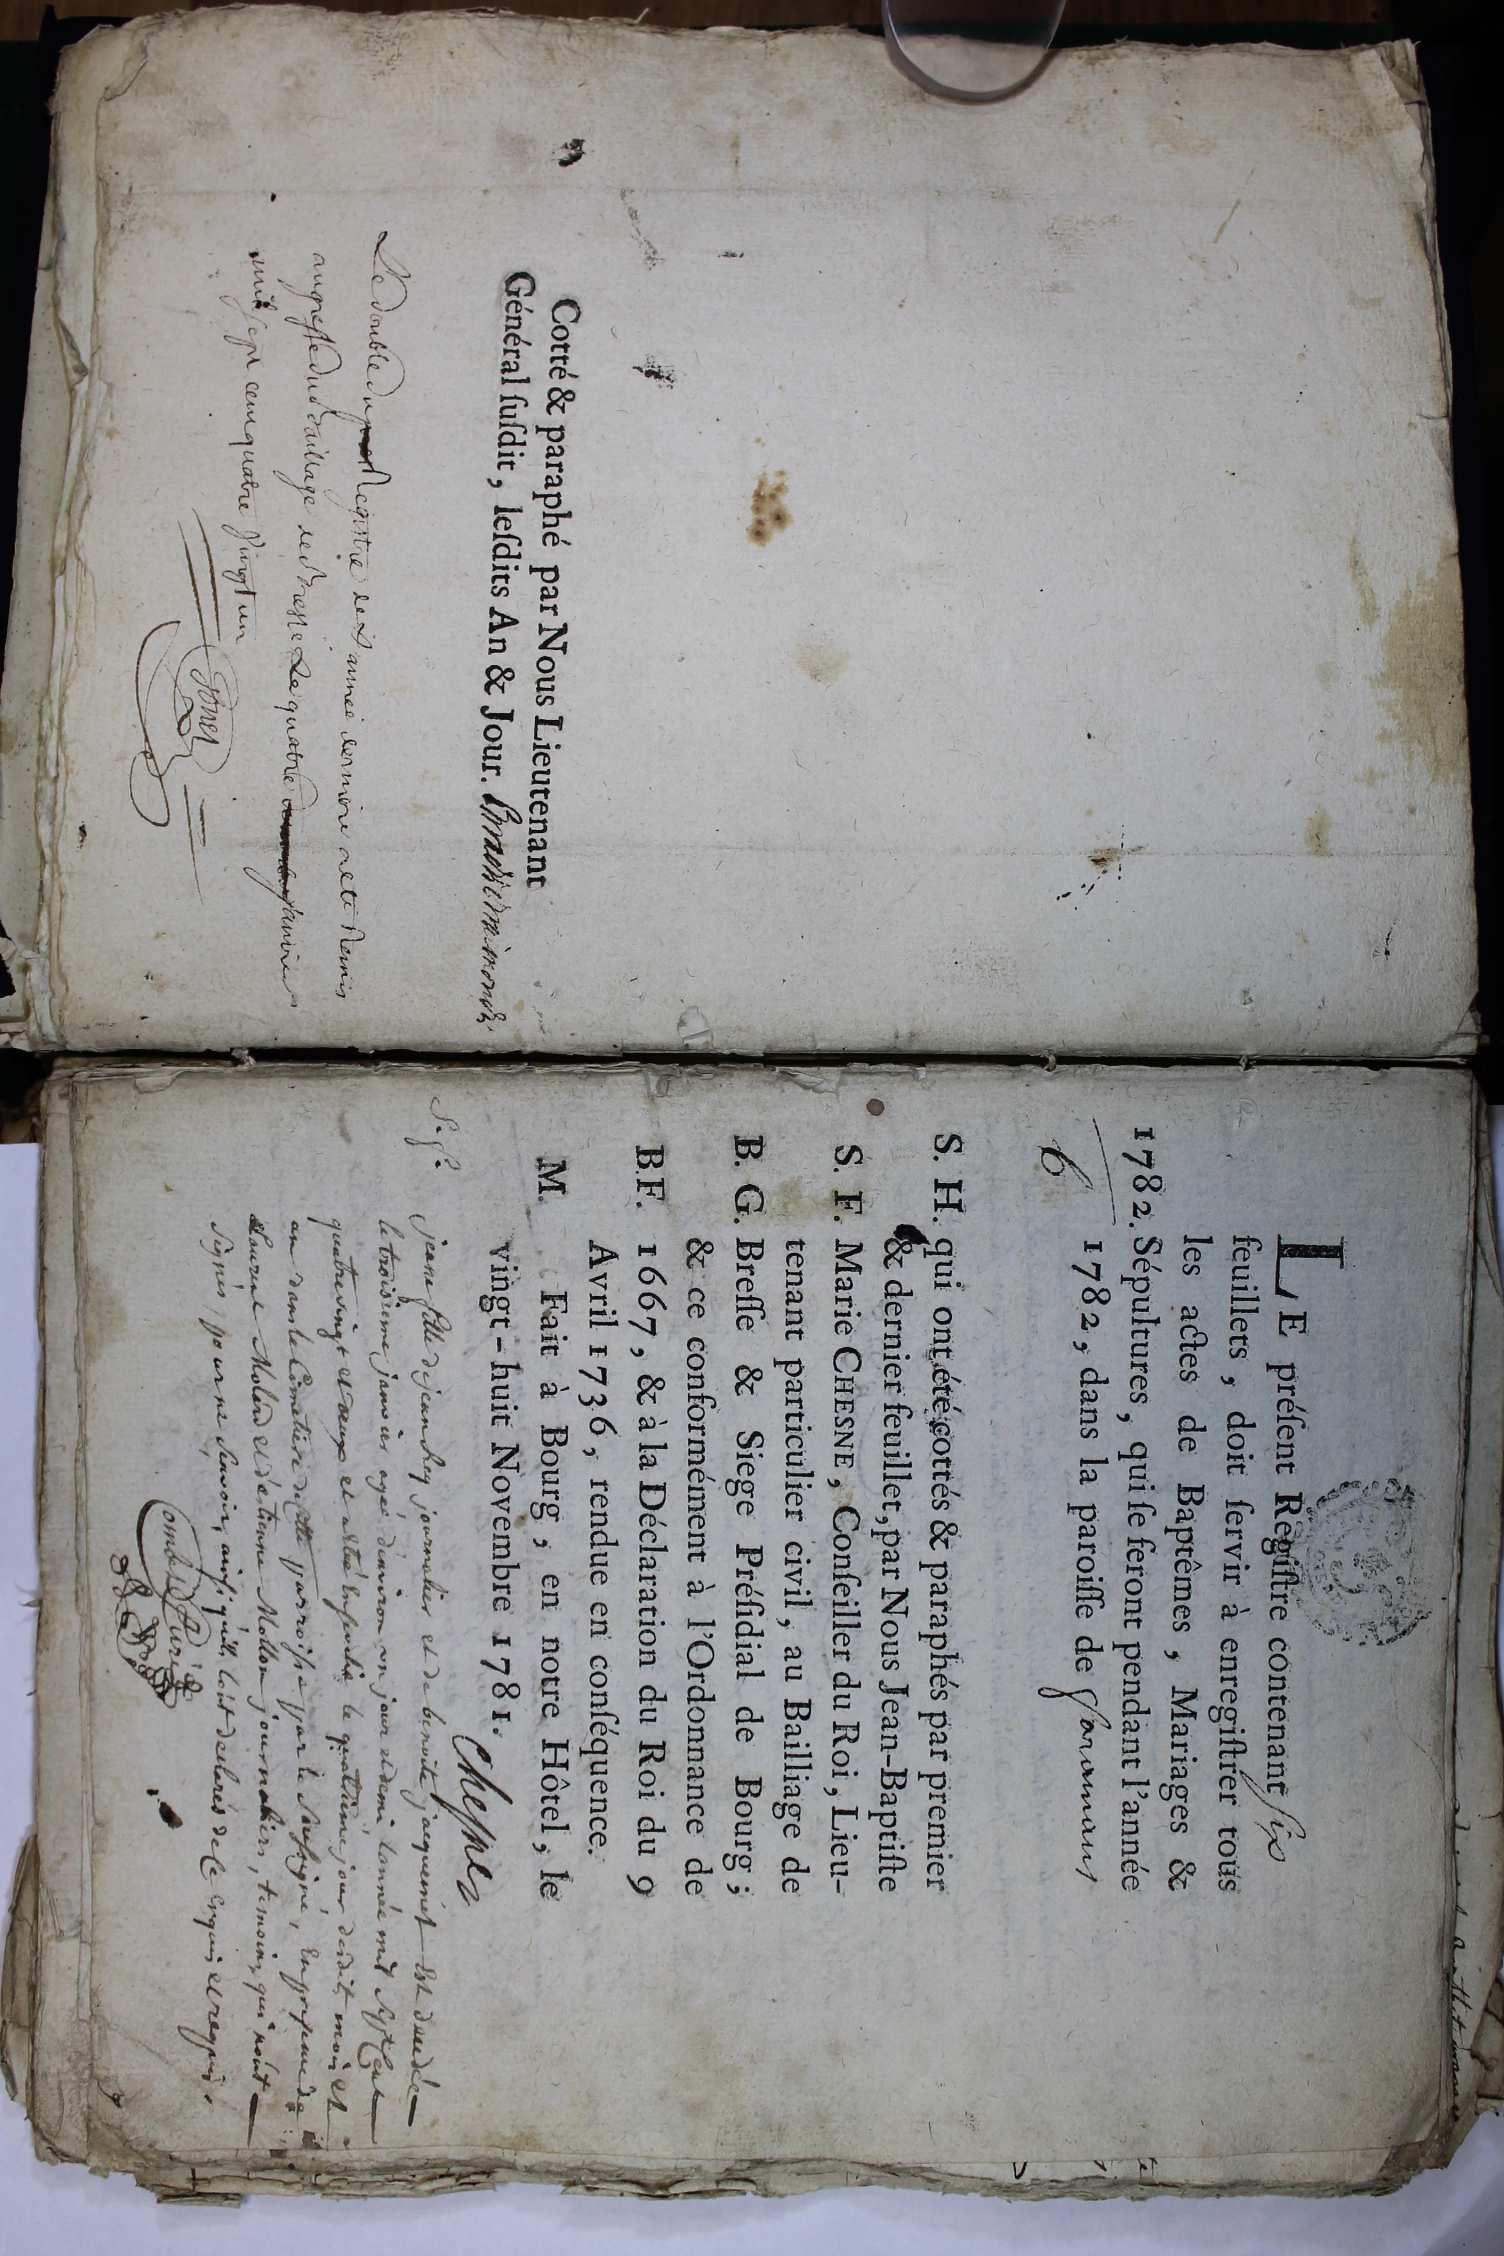 Cotté & paraphé par Nous Lieutenant
Général ſuſdit, leſdits An & Jour.
Le double du Registre de L'année derniere a eté Remis
au greffe du Bailliage de Bresse Le quatre janvier
mil sept cent quatre vingt un
LE préſent Regiſtre contenant six
feuillets, doit ſervir à enregiſtrer tous
les actes de Baptêmes, Mariages &
1782. Sépultures, qui ſe feront pendant l'année
1782, dans la paroiſſe de
6
S. H. qui ont été cottés & paraphés par premier
& dernier feuillet, par Nous Jean-Baptiſte
S. F. Marie CHESNE, Conſeiller du Roi, Lieu-
tenant particulier civil, au Bailliage de
B. G. Breſſe & Siege Préſidial de Bourg;
& ce conformément à l'Ordonnance de
B. F. 1667, & à la Déclaration du Roi du 9
Avril 1736, rendue en conſéquence.
M. Fait à Bourg, en notre Hôtel, le
vingt-huit Novembre 1781.
Chesne
S. f. jeane fille de jean Rey journalier et de benoite jacquemet Est décédée
le troisieme janvier agée d'environ un jour et demi l'année mil sept Cent
quatrevingt et deux et a été Enterrée le quatrieme jour desdits mois et
an dans le Cimetiere de cette parroisse par le Soussigné, En presence de
et d'etienne journaliers, temoins qui n'ont
signés pour ne Sçavoir, ainsi qu'ils l'ont declarés de ce Enquis et requis.
Curé